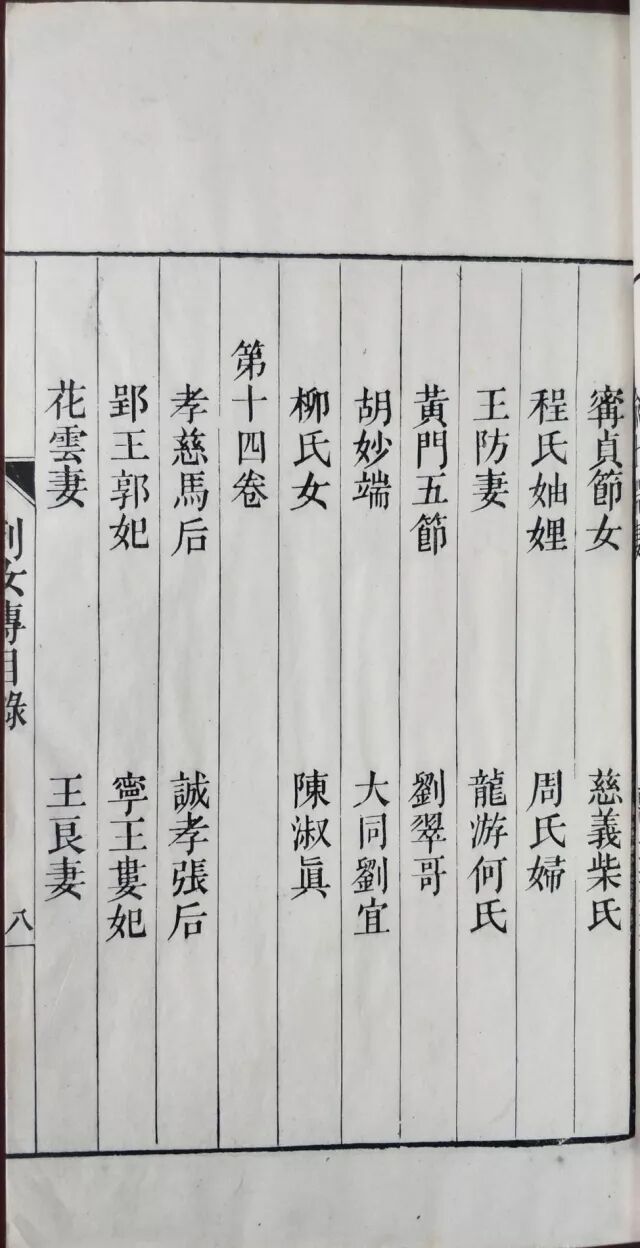 甯貞節女　慈義柴氏
程氏妯娌　周氏婦
王防妻　龍游何氏
黃門五節　劉翠哥
胡妙端　大同劉宜
柳氏女　陳淑眞
第十四卷
孝慈馬后　誠孝張后
郢王郭妃　寧王婁妃
花雲妻　王良妻
列女傳目錄　八